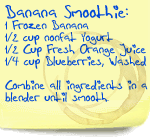 Banana Smoothie:
1 Frozen Banana
1/2 cup nonfat Yogurt
1/2 Cup Fresh Orange Juice
1/4 cup Blueberries, Washed
Combine all ingredients in a
blender until smooth.